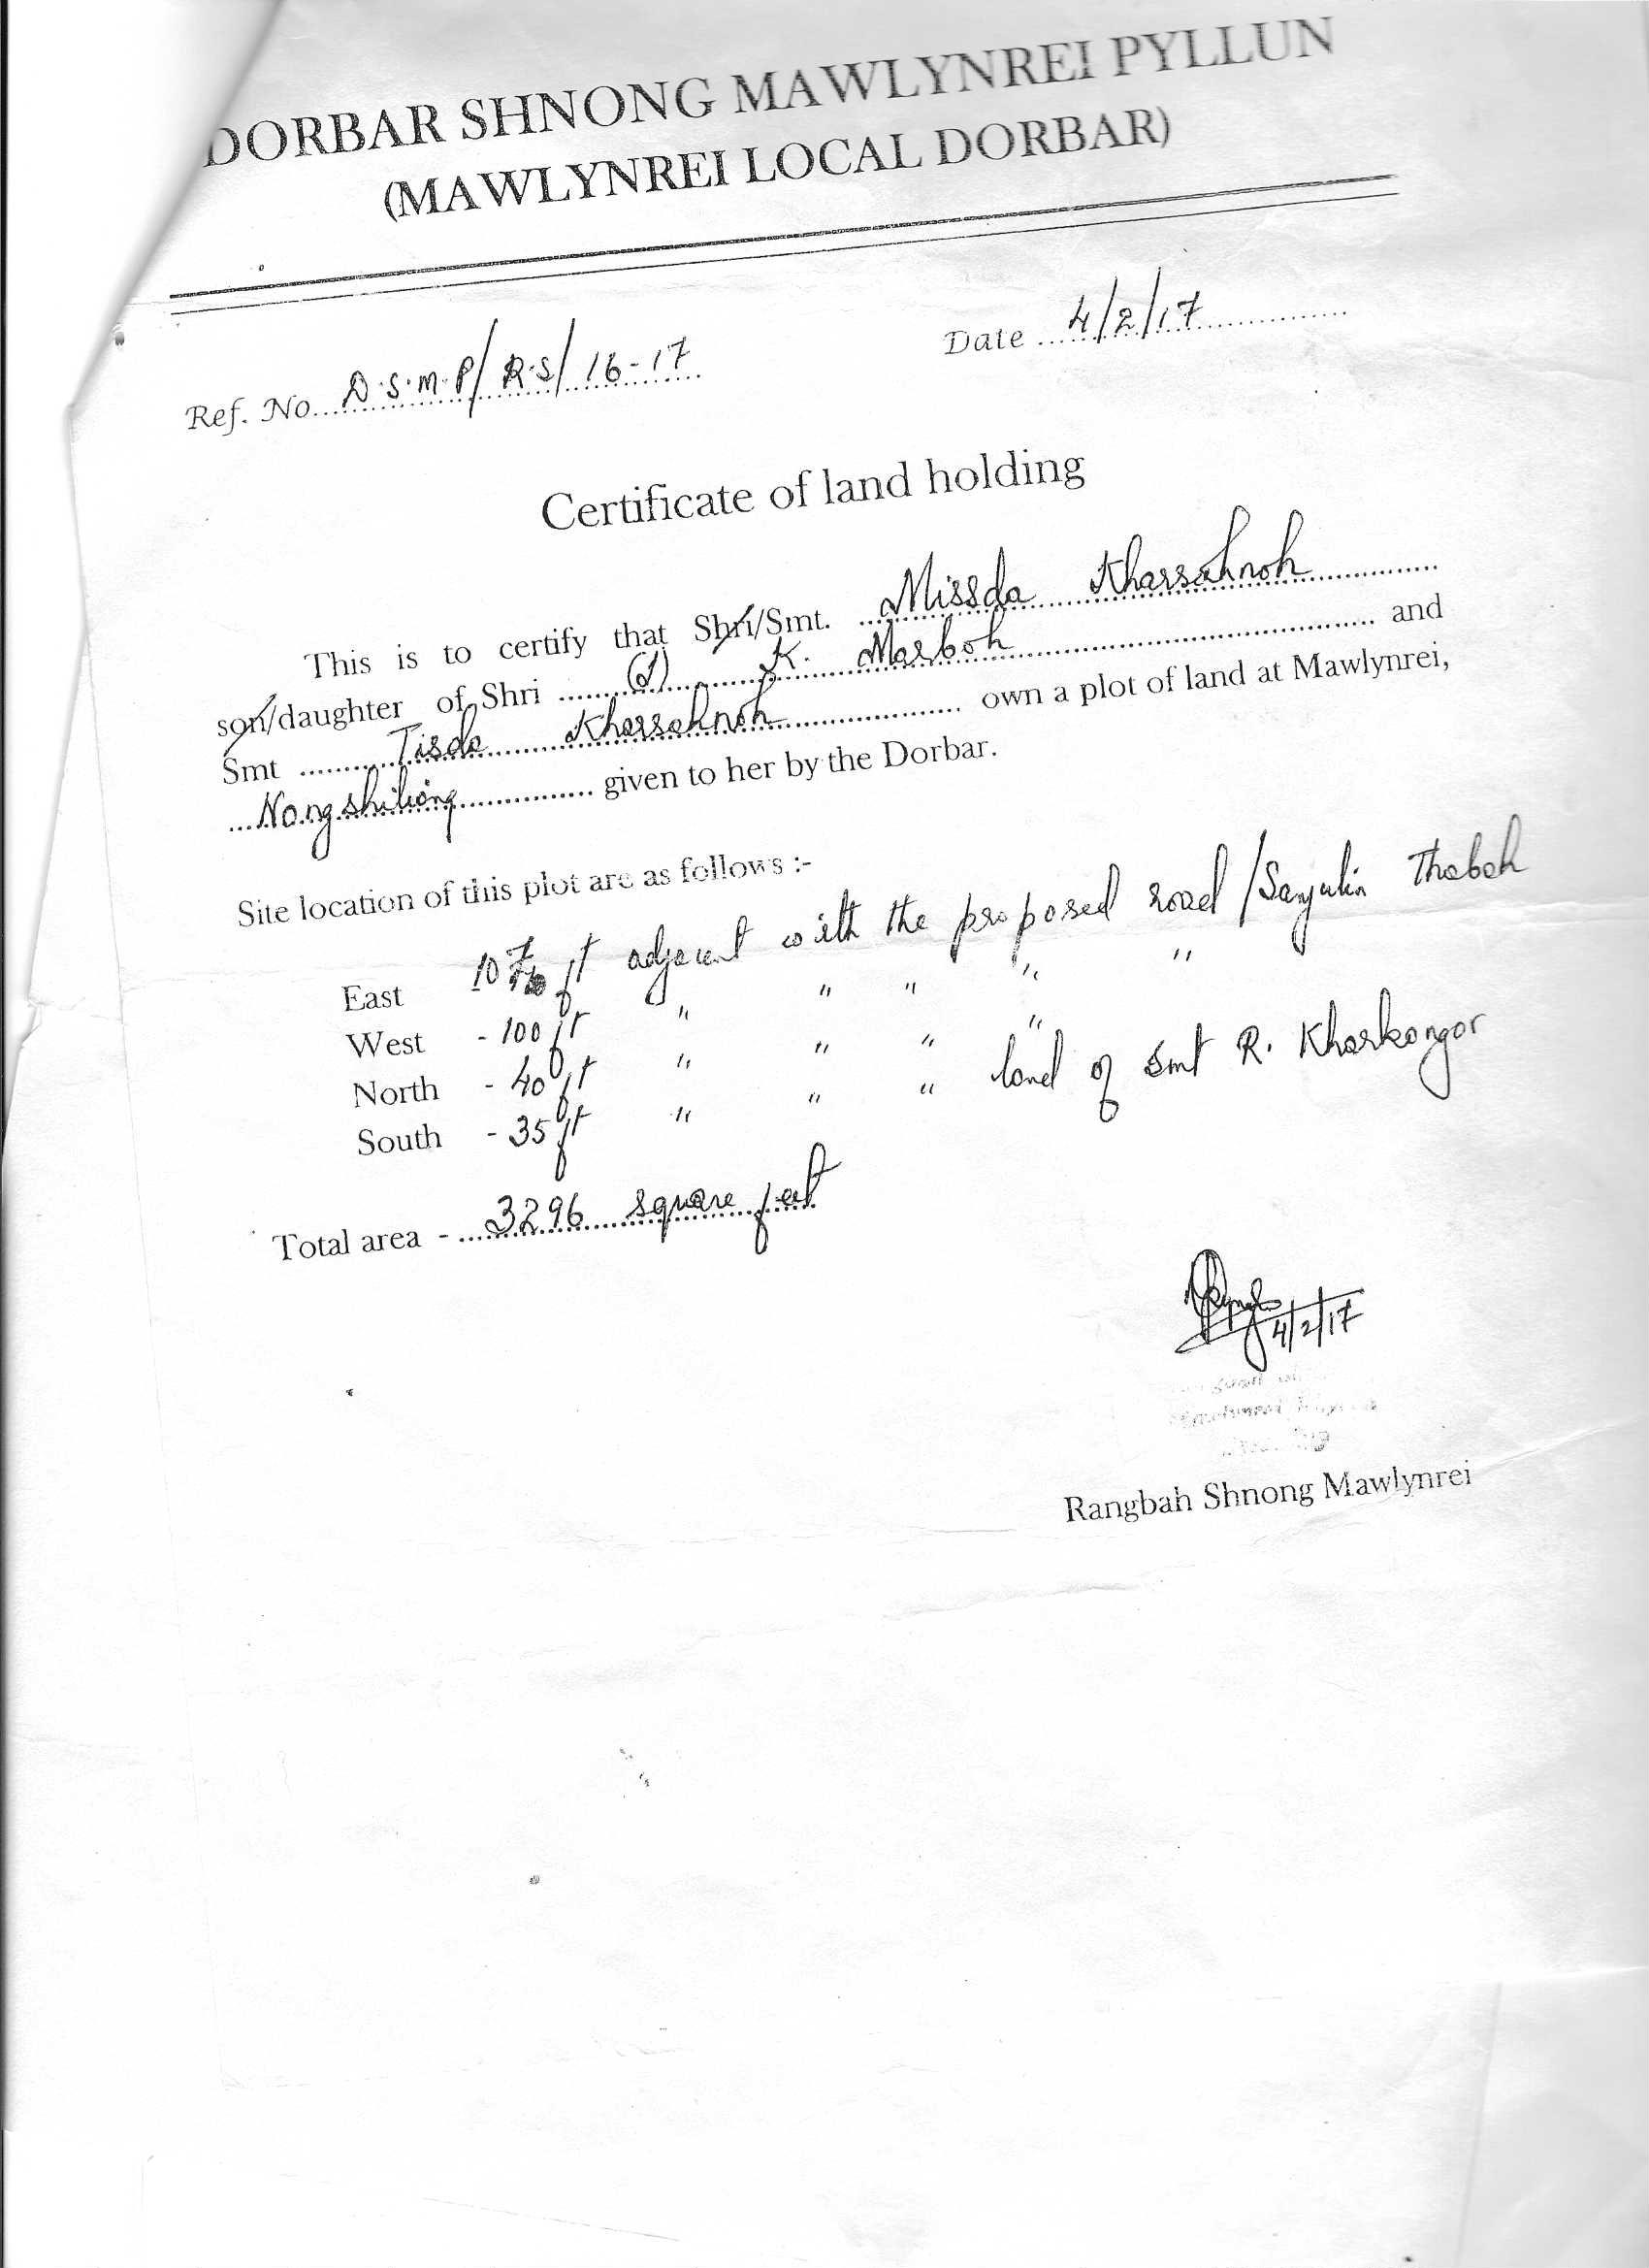 DORBAR SHNONG MAWLYNREI PYLLUN
(MAWLYNREI LOCAL DORBAR)
Ref. No. D.S.M.P/R.S/16-17
Date 4/2/17
Certificate of land holding
This is to certify that Shri/Smt. Missda Kharsahnoh
son/daughter of Shri (L) K. Marboh and
Smt Tisda Kharsahnoh own a plot of land at Mawlynrei,
Nongshiliang given to her by the Dorbar.
Site location of this plot are as follows :-
East 107 ft adjacent with the proposed road / Thabah
West - 100 ft " " " " "
North - 40 ft " " " "
South - 35 ft " " " land of Smt R. Kharkongor
Total area - 3296 square feet
4/2/17
Rangbah Shnong Mawlynrei